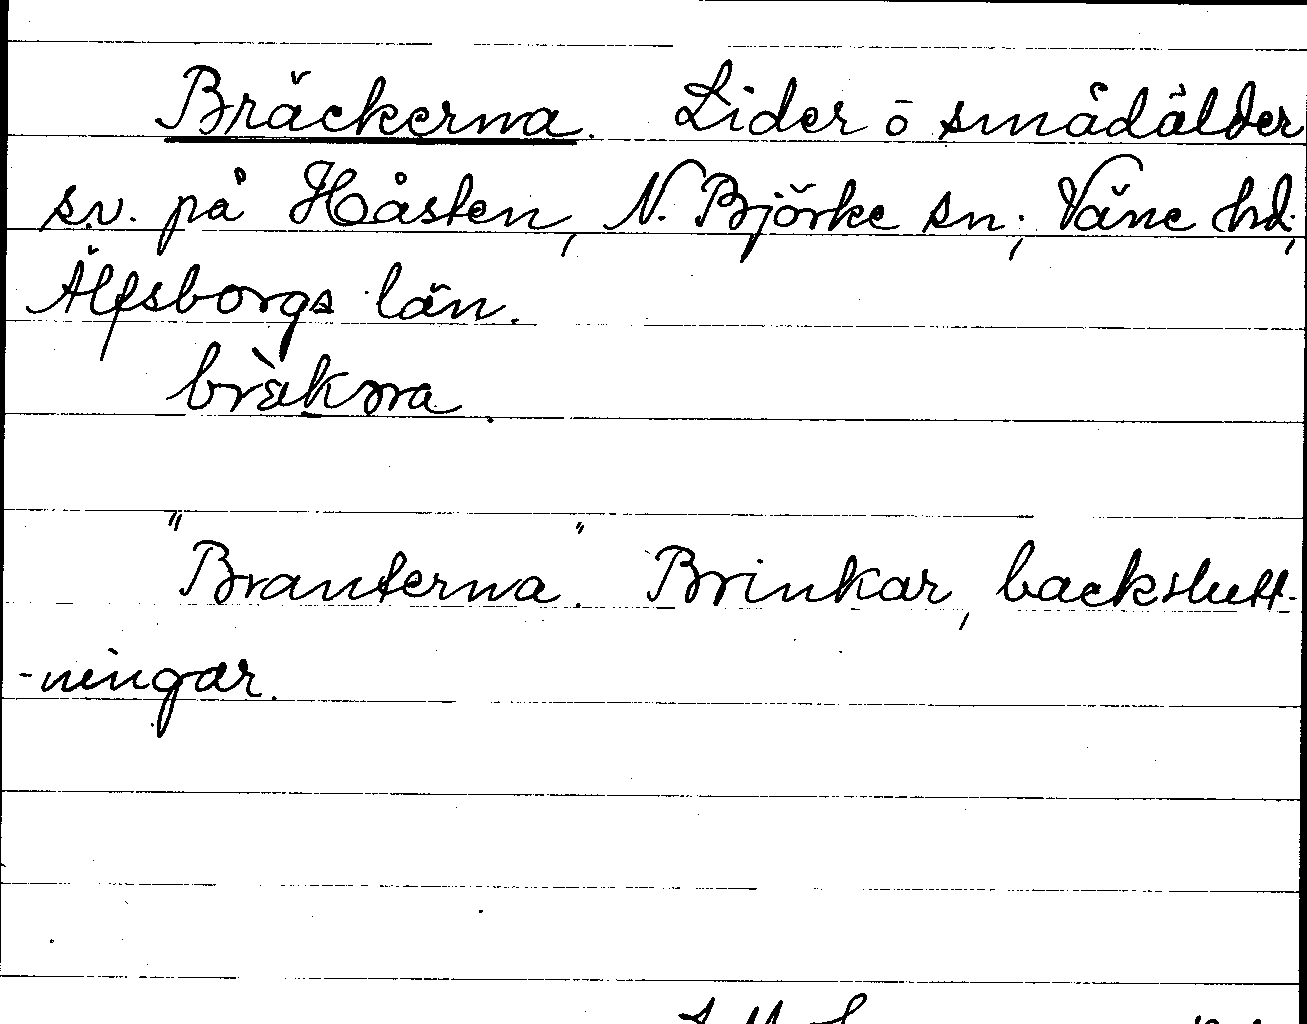 Bräckerna. Lider ō smådälder
s.v. på Håsten, N. Björke sn; Väne hd;
Älfsborgs län.
"Branterna." Brinkar, backslutt-
-ningar.